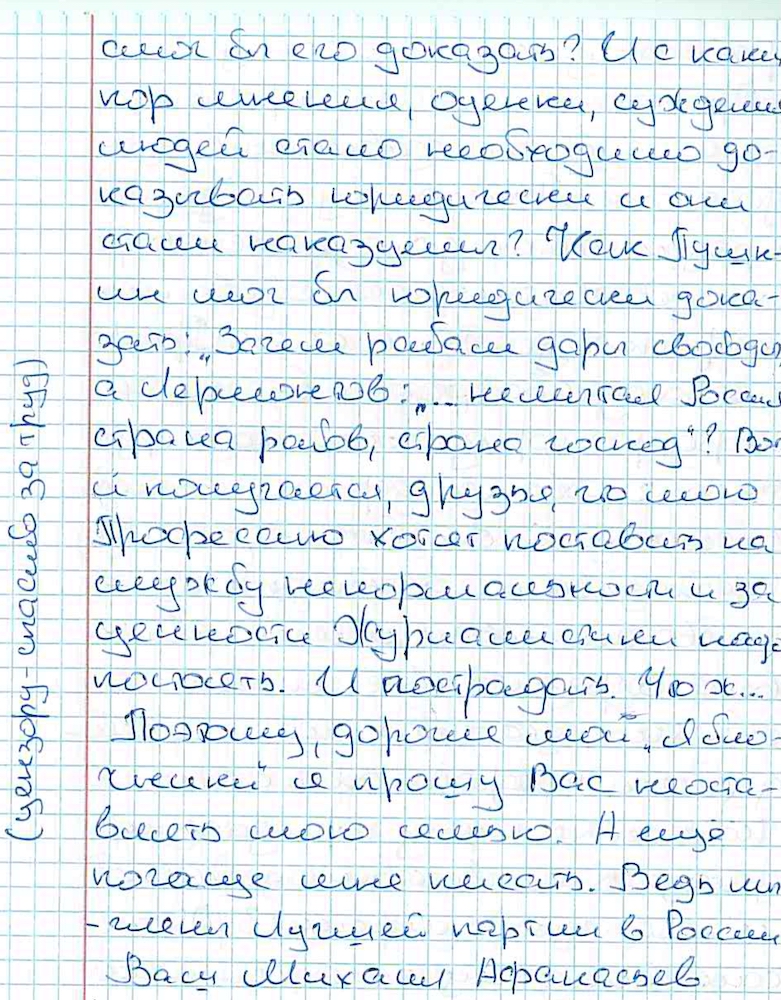 смог бы его доказать? И с каки
пор мнения, оценки, суждени
людей стало необходимо до-
казывать юридически и они
стали наказуемы? Как Пушк-
ин мог бы юридически дока-
зать: „Зачем рабам дары свободы
а Лермонтов: „... немытая Россия
страна рабов, страна господ"? Вот
и получается, друзья, что мою
Профессию хотят поставить на
службу ненормальности и за
ценности Журналистики надо
постоять. И пострадать. Что ж...
Поэтому, дорогие мои „Ябло-
чники" я прошу Вас не оста-
влять мою семью. А ещё
почаще мне писать. Ведь мы
- члены Лучшей партии в России
Ваш Михаил Афанасьев
(цензору - спасибо за труд)